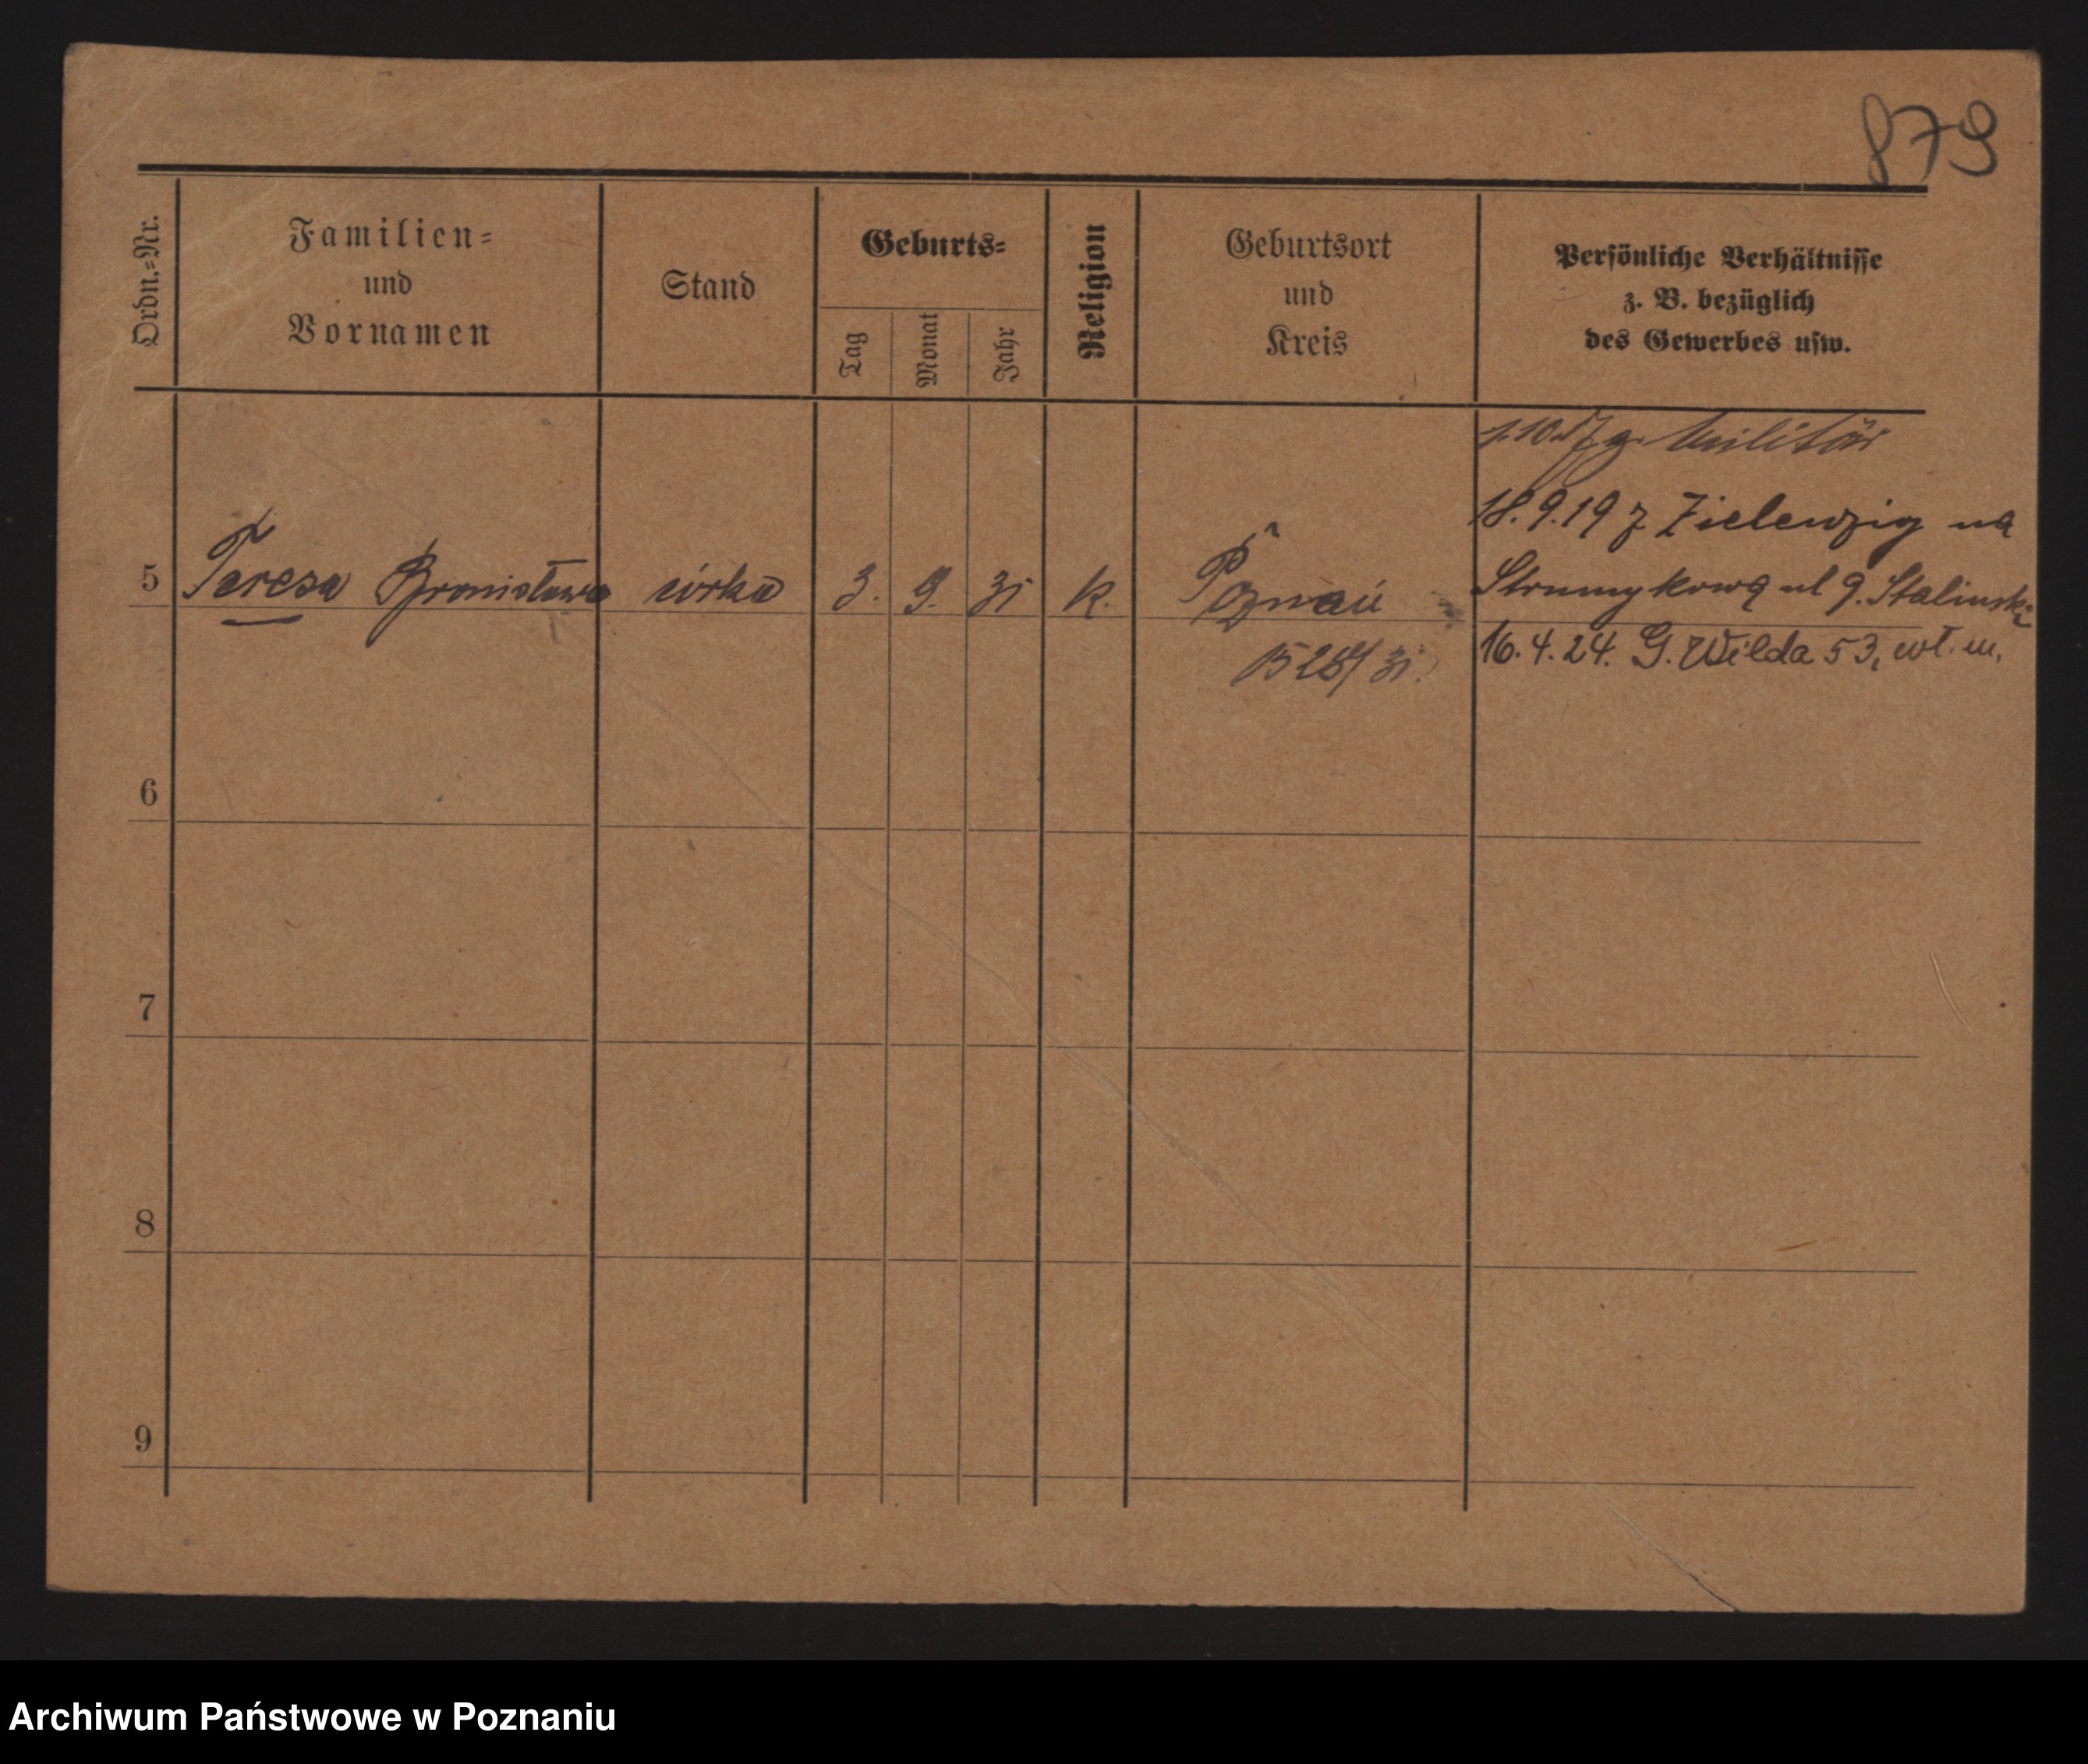 879
Ordn.=Nr.
Familien=
und
Vornamen
Stand
Geburts=
Tag
Monat
Jahr
Religion
Geburtsort
und
Kreis
Persönliche Verhältnisse
z. B. bezüglich
des Gewerbes usw.
Militär
18.9.19 z Zielenzig na
5 Teresa Bronisława córka 3. 9. 31 k. Poznań
Strumykową ul 9. Stalinski
1528/31.
16.4.24. G. Wilda 53, wł. m.
6
7
8
9
Archiwum Państwowe w Poznaniu